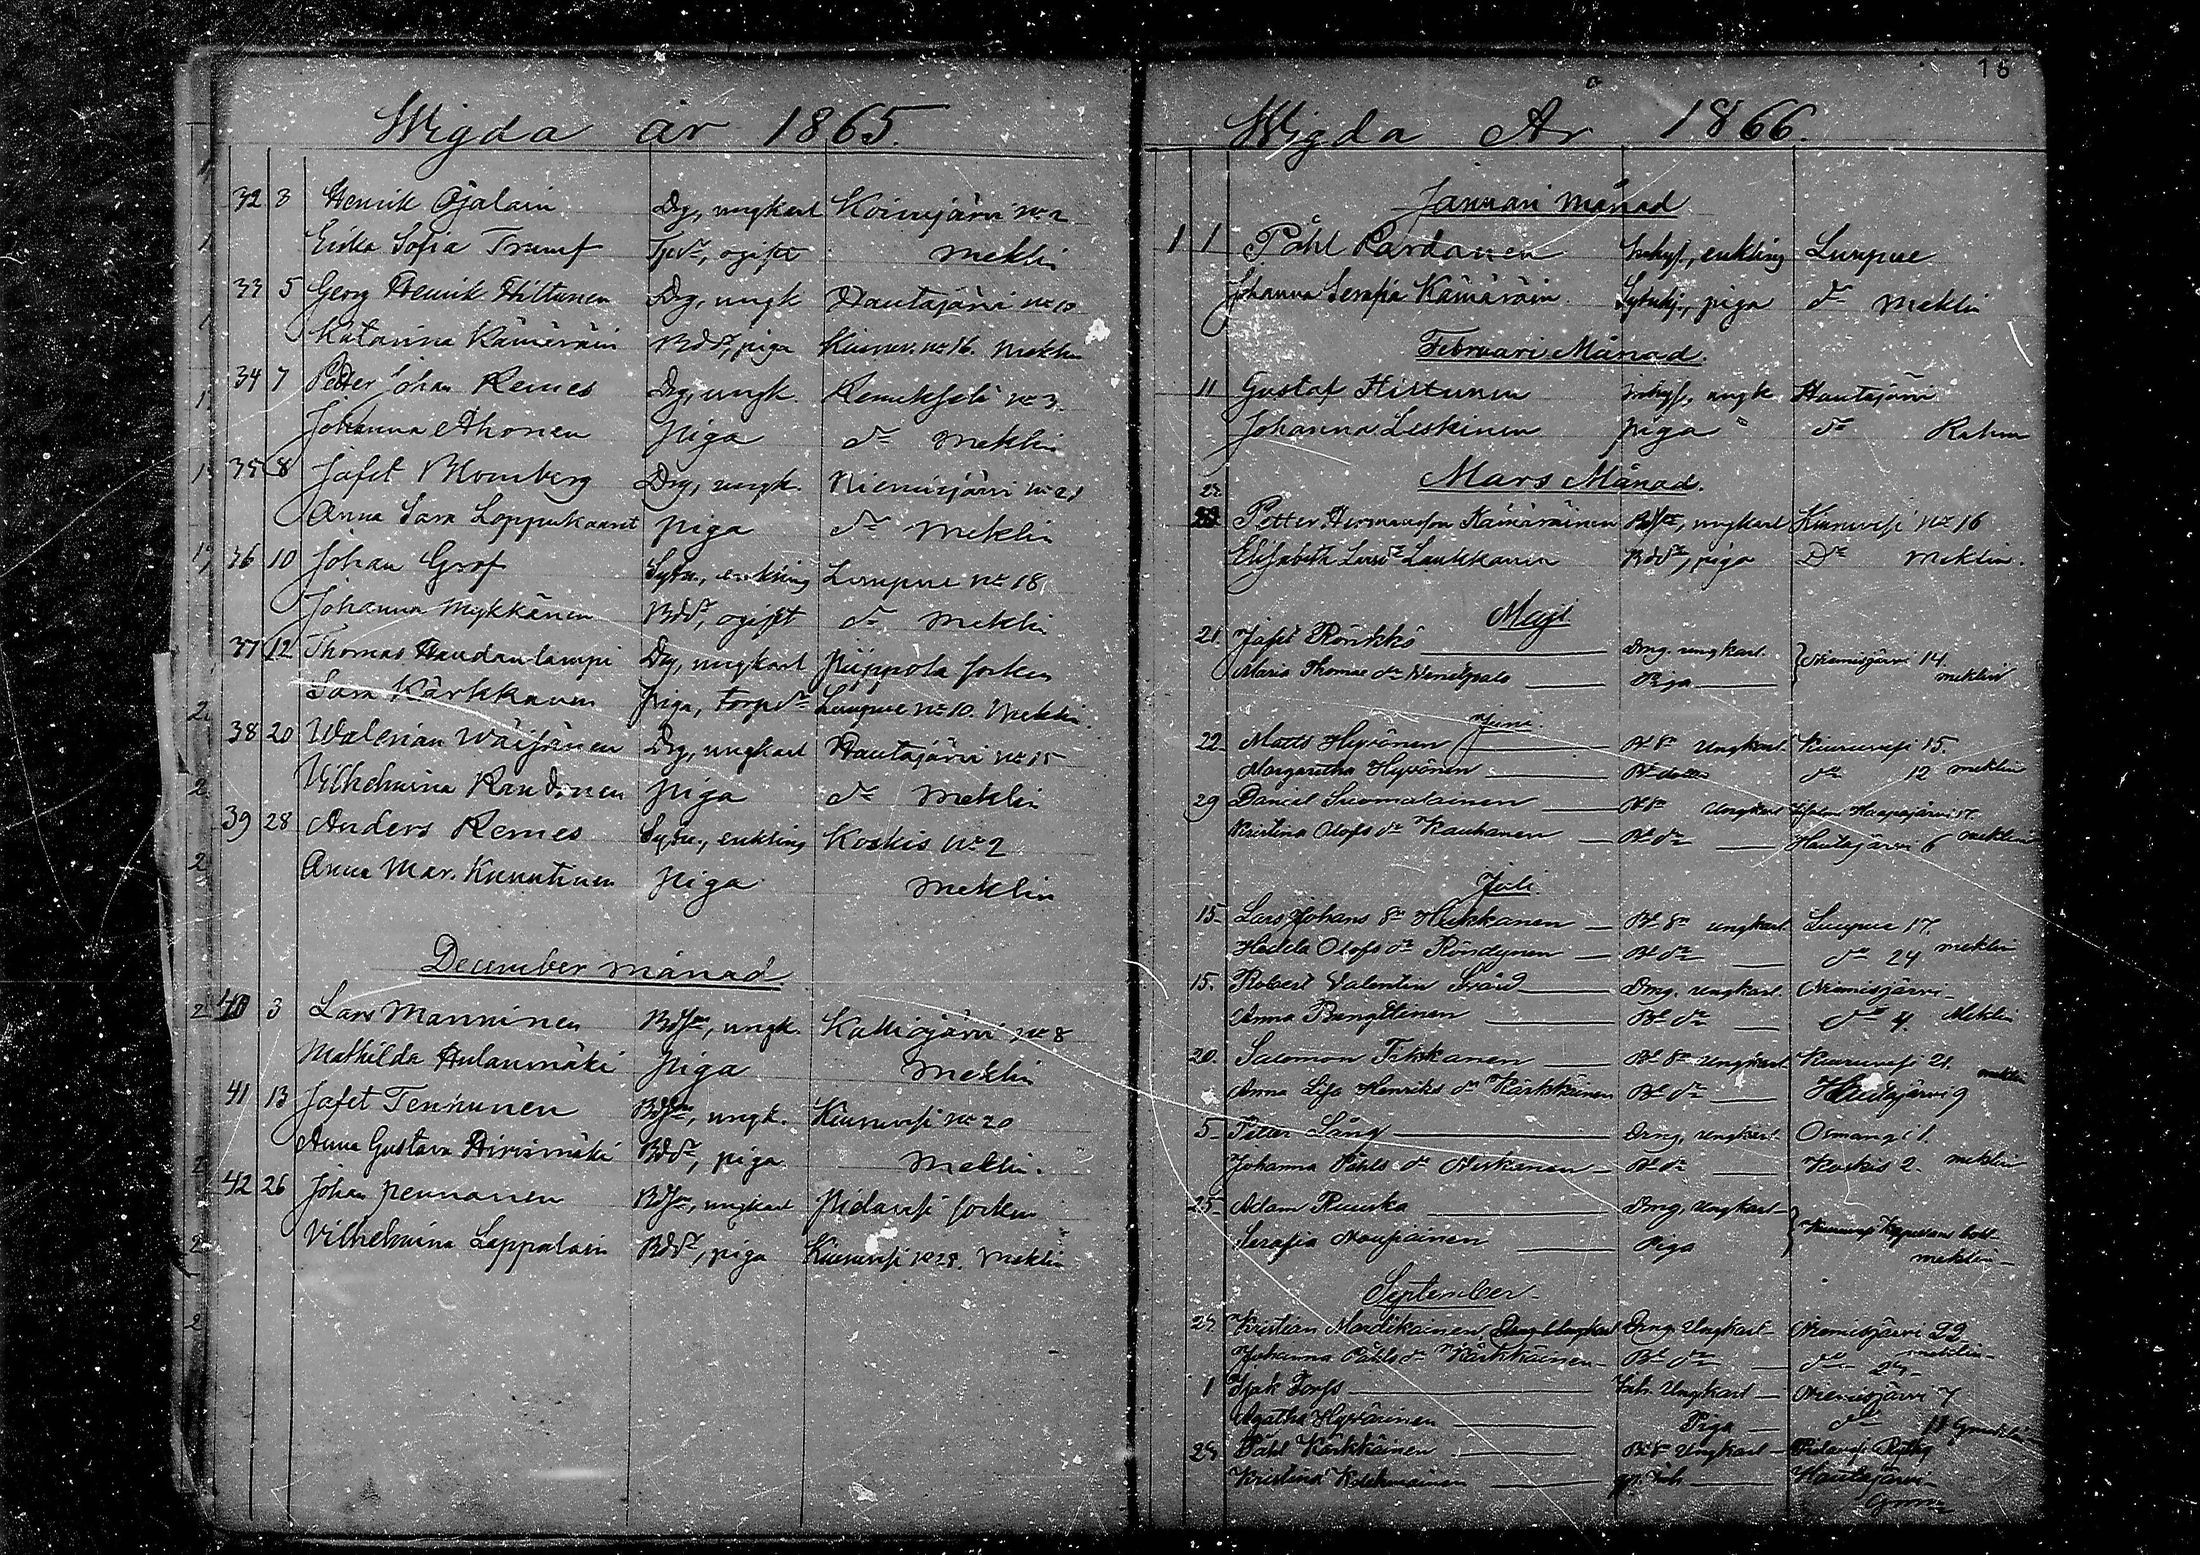 Wigda år 1865.
32 3 Henrik Ojalain Drg, ungkarl Koivujärvi No 2
Erika Sofia Trumf ogift Meklin
33 5 Georg Henrik Hiltunen Drg, ungk Hautajärvi No 10
Katarina Kämäräin Bddr, piga Kiuruv. No 16. Meklin
34 7 Petter Johan Remes Drg, ungk. Remeksela No 3
Johanna Ahonen piga do Meklin
35 8 Jafet Blomberg Drg, ungk. Niemisjärvi No 21
Anna Sara piga do Meklin
36 10 Johan Grof Sytn., enkling Luupue No 18
Johanna Mykkänen Bdr, ogift do Meklin
37 12 Thomas Haudanlampi Drg, ungkarl Piippola socken
Sara Kärkkänen piga, torpdr Luupue No 10. Meklin
38 20 Walerian Wäisänen Drg, ungkarl Hautajärvi No 15
Vilhelmina piga do Meklin
39 28 Anders Remes Sytn., enkling Koskis No 2
Anna Mar. Kumutinen piga Meklin
December månad.
40 3 Lars Manninen Bdsn, ungk. Kalliojärvi No 8
Mathilda Aulanmäki piga Meklin
41 13 Jafet Tenhunen Bdsn, ungk. Kiuruvesi No 20
Anna Gustava Hirsimäki Bddr, piga Meklin.
42 26 Johan Pennanen Bdsn, ungkarl Pidavesi socken
Vilhelmina Lappalain Bddr, piga Kiuruvesi No 28. Meklin
16
Wigda År 1866.
Januari Månad
1 1 Påhl Pardanen Inhys, enkling Luupue
Johanna Serafia Kämäräin piga do Meklin
Februari Månad.
11 Gustaf Hiltunen inhys, ungk Hautajärvi
Johanna Leskinen piga do Rahm
Mars Månad.
Petter Hermansson Kämäräinen Bdsn, ungkarl Kiuruvesi No 16
Elisabeth Larsdr Laukkanen Bddr, piga Do Meklin.
Maji
21 Jafet Rönkkö Drng. ungkarl. Niemisjärvi 14.
Maria Thomae dr Venelpalo Piga meklin
Juni.
22 Matts Hyvönen Bd sn Ungkarl. Kiuruvesi 15.
Margaretha Hyvönen Bd dotter do 12 meklin
29 Daniel Suomalainen Bd sn Ungkarl Haapajärvi 17.
Kristina Olofs dr Kauhanen Bd dr Hautajärvi 6 meklin
Juli.
15 Lars Johans sn Hukkanen Bd sn ungkarl Luupue 17.
Hedda Olofs dr Röndynen Bd dr do 24 meklin
15. Robert Valentin Svärd Drng. ungkarl. Niemisjärvi
Anna Pungttinen Bd dr do 4. Meklin
20. Salomon Tikkanen Bd sn Ungkarl Kiuruvesi 21.
Anna Lisa Henriks dr Kärkkäinen Bd dr Hautajärvi 9 meklin
5 Petter Lång Drng, ungkarl. Osmangi 1.
Johanna Påhls dr Niskanen Bd dr Koskis 2. meklin
25 Adam Ruuska Drng, Ungkarl
Serafia Nousiainen Piga meklin
September
Kristian Mondikainen Drng. Ungkarl Niemisjärvi 22
Johanna Påhls dr Kärkkäinen Bd dr do meklin
1 Isak Torfs Inh. Ungkarl Niemisjärvi 7
Agatha Hyvärinen Piga do 11
Påhl Kärkkäinen Bd sn Ungkarl
Kristina Kolehmainen Inh. Hautajärvi